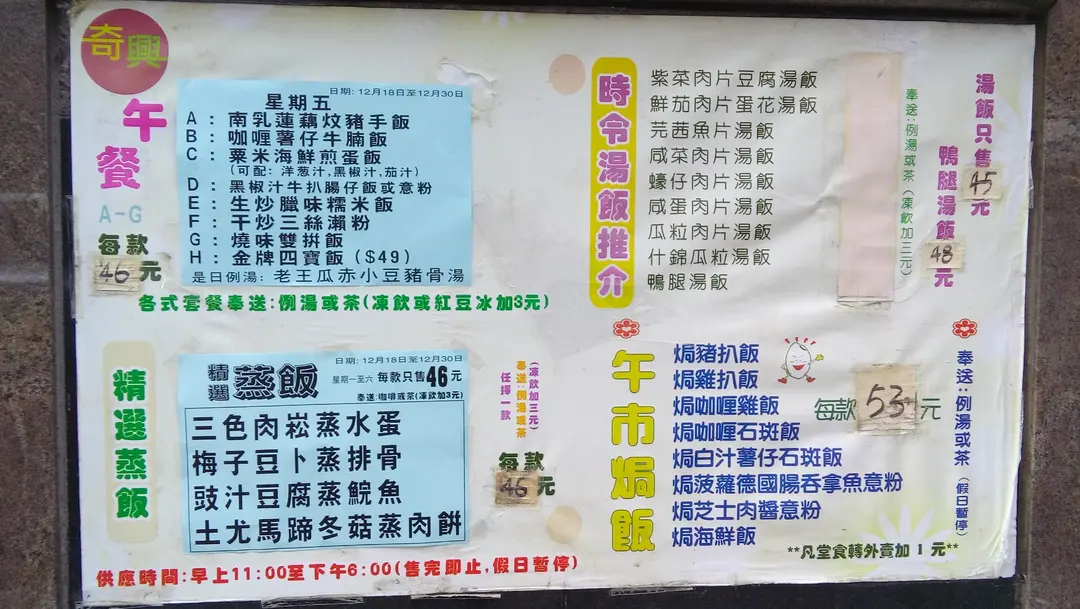 奇興
午餐
A-G
每款
46元
日期: 12月18日至12月30日
星期五
A：南乳蓮藕炆豬手飯
B：咖喱薯仔牛腩飯
C：粟米海鮮煎蛋飯
(可配: 洋葱汁,黑椒汁,茄汁)
D：黑椒汁牛扒腸仔飯或意粉
E：生炒臘味糯米飯
F：干炒三絲瀨粉
G：燒味雙拼飯
H：金牌四寶飯 ($49)
是日例湯: 老王瓜赤小豆豬骨湯
各式套餐奉送:例湯或茶(凍飲或紅豆冰加3元)
精選蒸飯
日期: 12月18日至12月30日
精選 蒸飯
星期一至六 每款只售46元
奉送:咖啡或茶(凍飲加3元)
三色肉崧蒸水蛋
梅子豆卜蒸排骨
豉汁豆腐蒸鯇魚
土尤馬蹄冬菇蒸肉餅
(凍飲加三元)
奉送:例湯或茶
任擇一款
每款
46元
供應時間:早上11:00至下午6:00(售完即止,假日暫停)
時令湯飯推介
紫菜肉片豆腐湯飯
鮮茄肉片蛋花湯飯
芫茜魚片湯飯
咸菜肉片湯飯
蠔仔肉片湯飯
咸蛋肉片湯飯
瓜粒肉片湯飯
什錦瓜粒湯飯
鴨腿湯飯
奉送:例湯或茶(凍飲加三元)
湯飯只售45元
鴨腿湯飯48元
午市焗飯
焗豬扒飯
焗雞扒飯
焗咖喱雞飯
焗咖喱石斑飯
焗白汁薯仔石斑飯
焗菠蘿德國腸吞拿魚意粉
焗芝士肉醬意粉
焗海鮮飯
每款53元
奉送:例湯或茶(假日暫停)
**凡堂食轉外賣加 1 元**